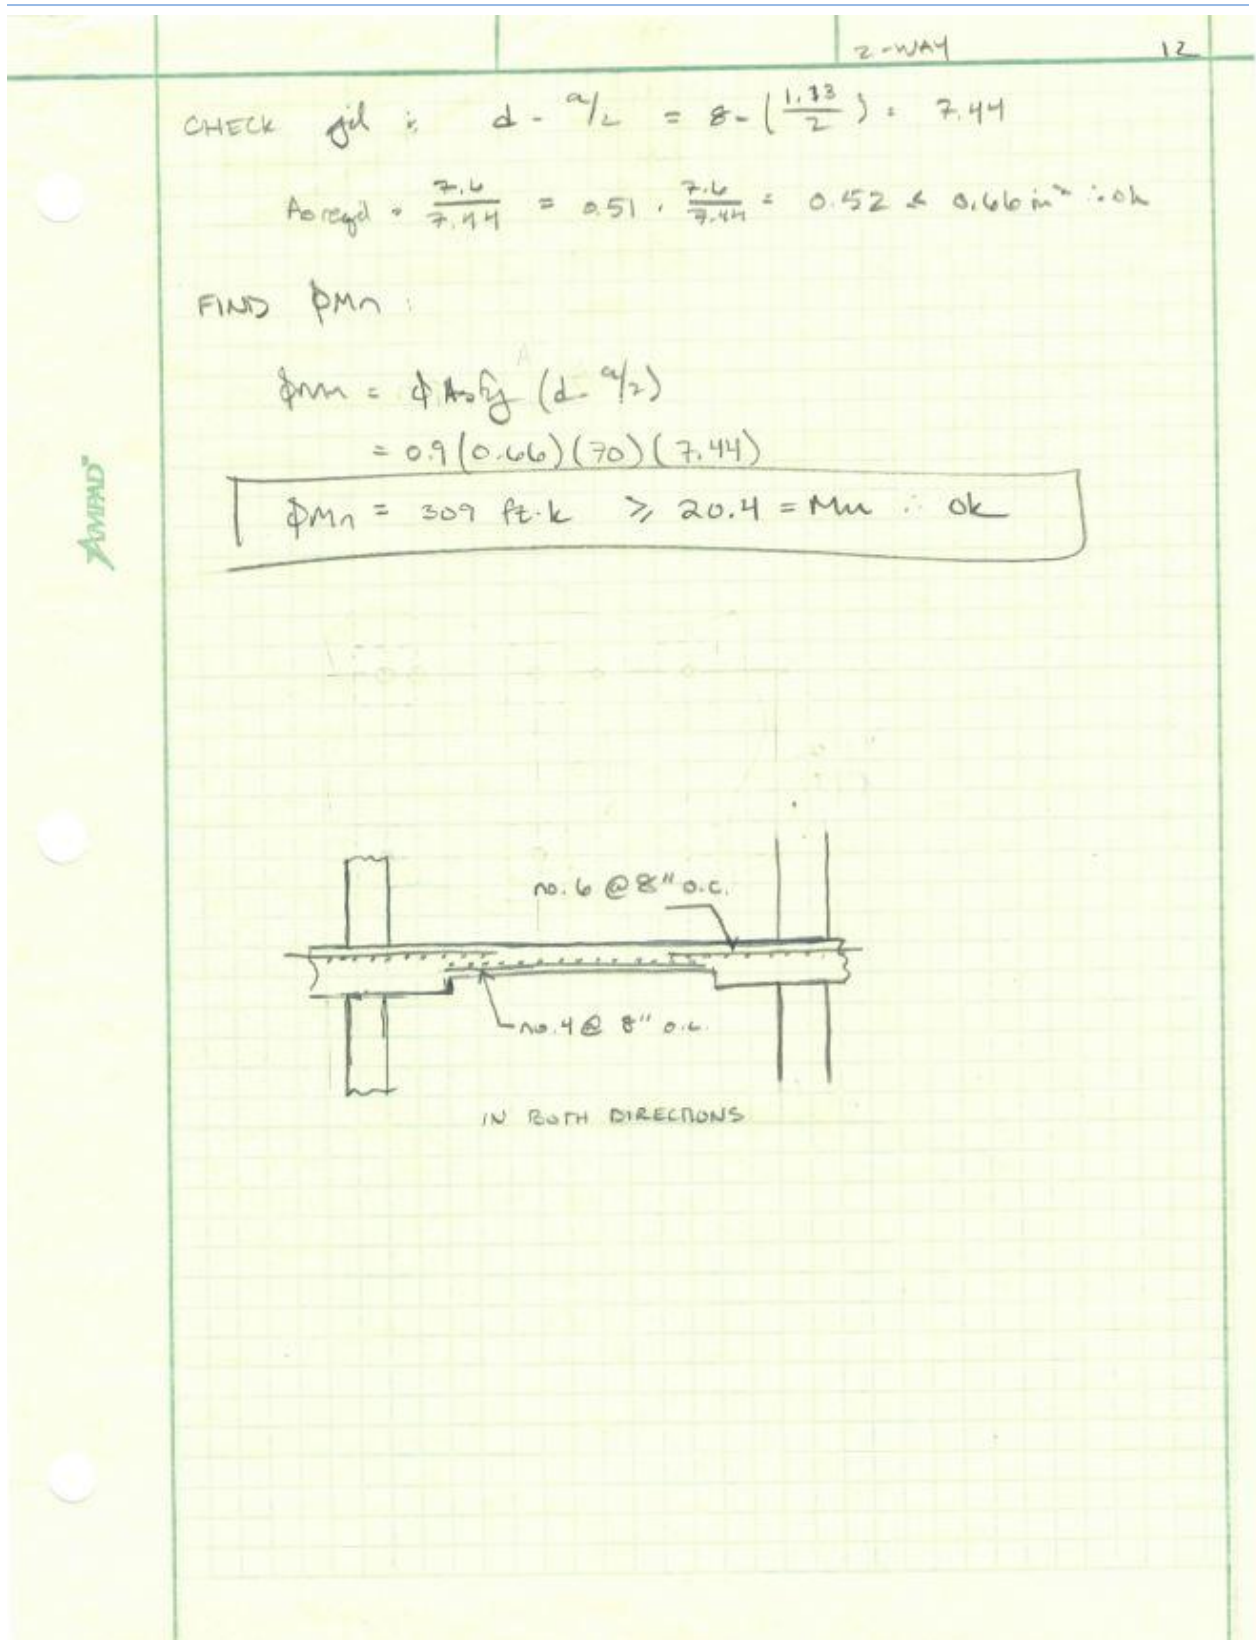 2-WAY 12
CHECK jd : d - a/2 = 8 - (1.13/2) = 7.44
As req'd = 7.6/7.44 = 0.51 · 7.6/7.44 = 0.52 ≤ 0.66 in² ∴ ok
FIND ϕMn :
ϕMn = ϕ As fy (d - a/2)
= 0.9 (0.66) (70) (7.44)
ϕMn = 309 ft·k ≥ 20.4 = Mu ∴ ok
AMPAD™
no. 6 @ 8" o.c.
no. 4 @ 8" o.c.
IN BOTH DIRECTIONS